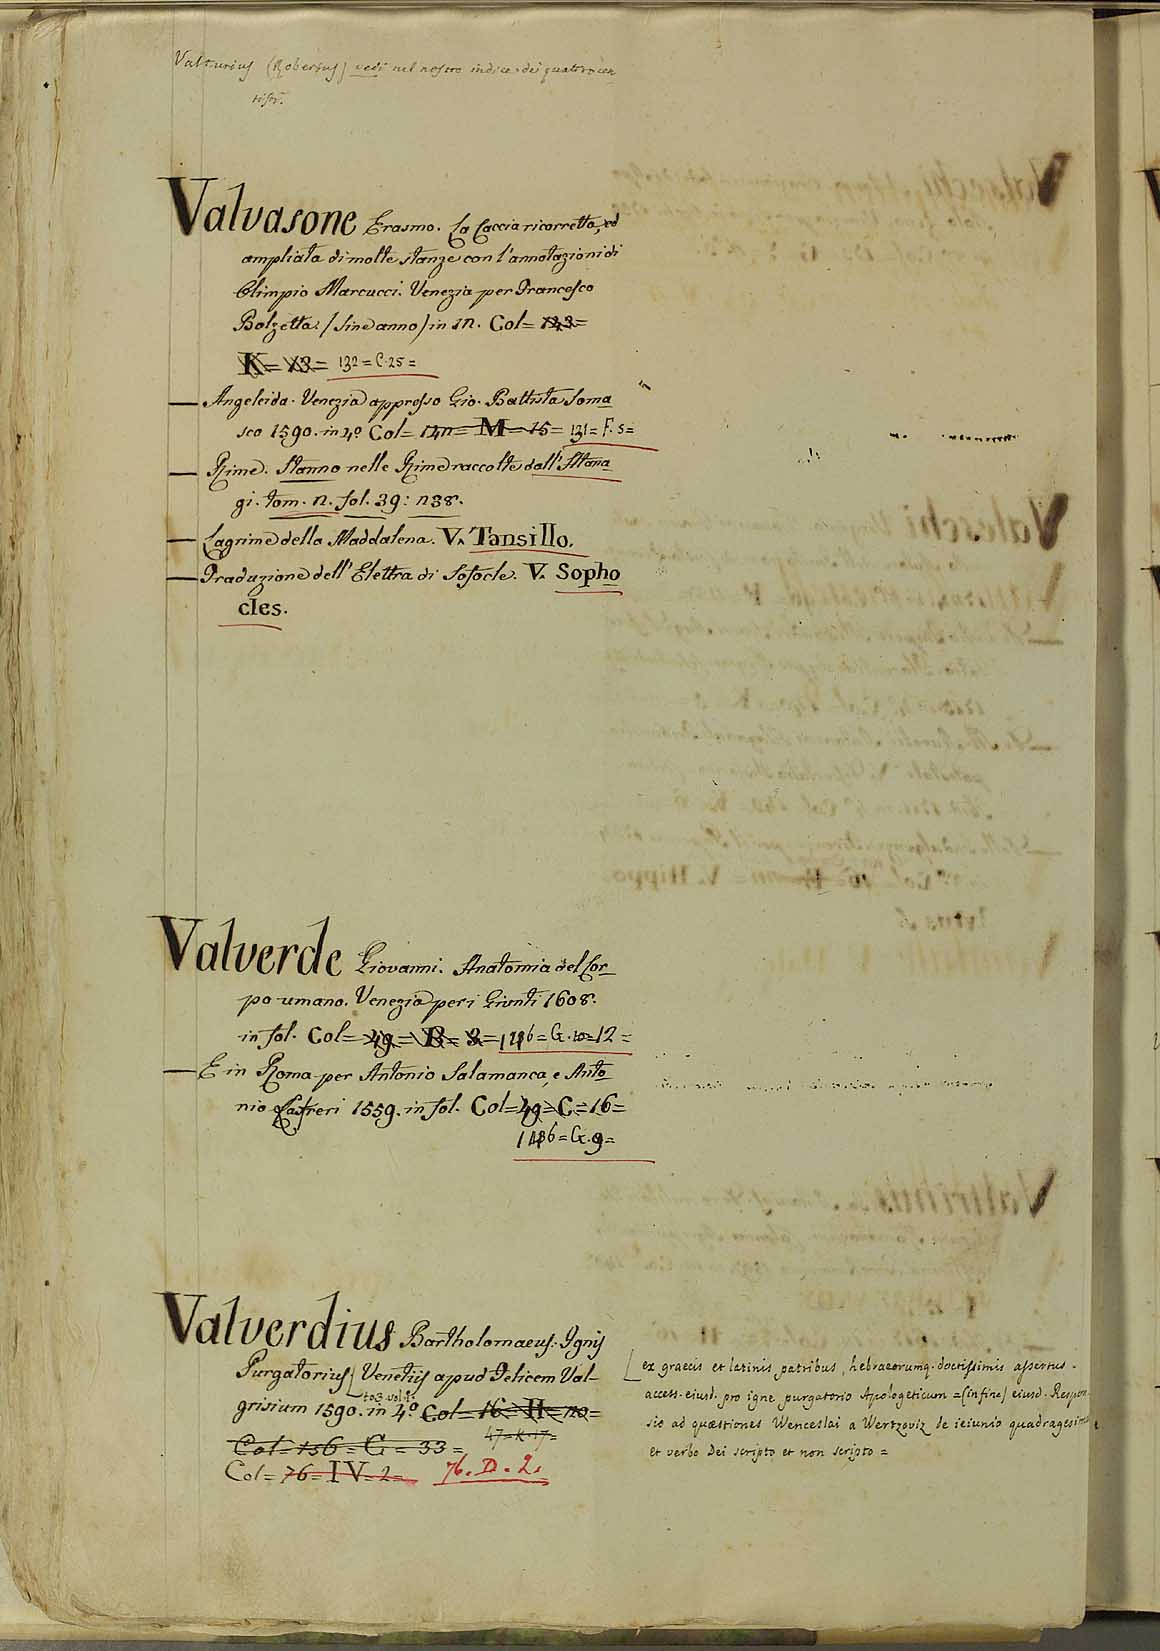 Valturius (Robertus) vedi nel nostro indice dei quatrocen
tisti.
Valvasone Erasmo. La Caccia ricorretta, ed
ampliata di molte stanze con l'annotazioni di
Olimpio Marcucci. Venezia per Francesco
Bolzetta. (sine anno) in 12. Col= 143=
K= 13= 132= C. 25=
— Angeleida. Venezia appresso Gio. Battista Soma
sco 1590. in 4º Col= M= 15= 131= F. 5=
— Rime. Stanno nelle Rime raccolte dall'Atana
gi. tom. n. fol. 39: n38.
— Lagrime della Maddalena. V. Tansillo.
— Traduzione dell'Elettra di Sofocle. V. Sopho
cles.
Valverde Giovanni. Anatomia del Cor
po umano. Venezia per i Giunti 1608.
in fol. Col= 49= B= 3= G. 12=
— E in Roma per Antonio Salamanca, e Anto
nio Lafreri 1559. in fol. Col= 49= C= 16=
G. 9=
Valverdius Bartholomaeus. Ignis
Purgatorius Venetiis apud Felicem Val-
grisium 1590. in 4º Col= 16= H= 120=
47= K. 17=
Col= 136= G= 33=
Col= 76= IV= 2= 76. D. 2.
ex graecis et latinis patribus, hebraeorumq. doctissimis assertus.
access. eiusd. pro igne purgatorio Apologeticum =(in fine) eiusd. Respon
sio ad quæstiones Wenceslai a Wertzoviz de ieiunio quadragesimae
et verbo Dei scripto et non scripto=